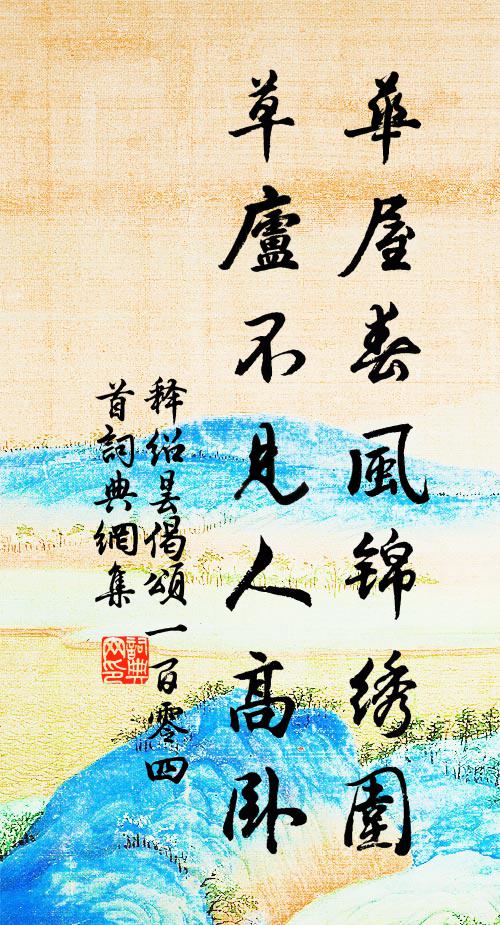 華屋春風錦绣園
草廬不見人高卧
释绍昙偈頌一百零四
首詞典網集
詞典
网印